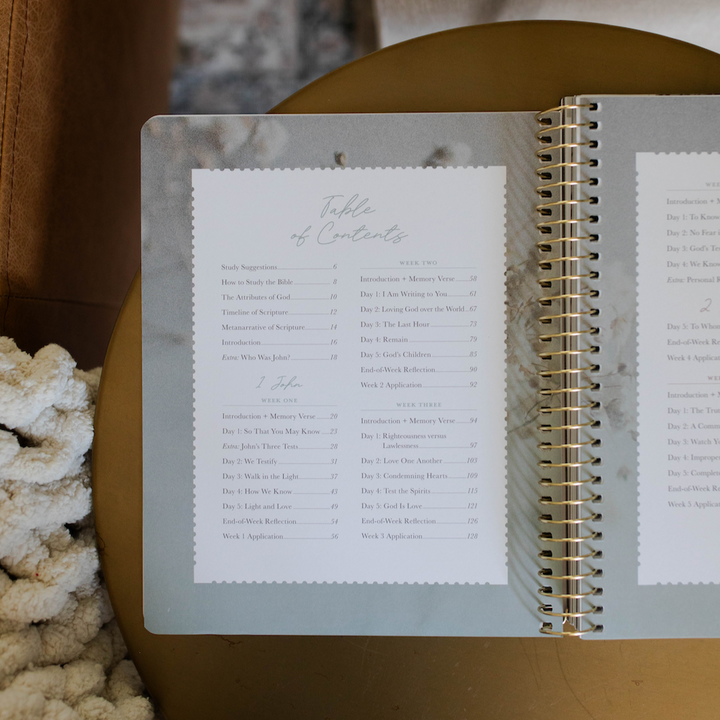 Table
of Contents
Study Suggestions 6
How to Study the Bible 8
The Attributes of God 10
Timeline of Scripture 12
Metanarrative of Scripture 14
Introduction 16
Extra: Who Was John? 18
1 John
WEEK ONE
Introduction + Memory Verse 20
Day 1: So That You May Know 23
Extra: John's Three Tests 28
Day 2: We Testify 31
Day 3: Walk in the Light 37
Day 4: How We Know 43
Day 5: Light and Love 49
End-of-Week Reflection 54
Week 1 Application 56
WEEK TWO
Introduction + Memory Verse 58
Day 1: I Am Writing to You 61
Day 2: Loving God over the World 67
Day 3: The Last Hour 73
Day 4: Remain 79
Day 5: God's Children 85
End-of-Week Reflection 90
Week 2 Application 92
WEEK THREE
Introduction + Memory Verse 94
Day 1: Righteousness versus
Lawlessness 97
Day 2: Love One Another 103
Day 3: Condemning Hearts 109
Day 4: Test the Spirits 115
Day 5: God Is Love 121
End-of-Week Reflection 126
Week 3 Application 128
Introduction + M
Day 1: To Know
Day 2: No Fear
Day 3: God's Te
Day 4: We Know
Extra: Personal
2
Day 5: To Whom
End-of-Week Re
Week 4 Applicat
Introduction + M
Day 1: The
Day 2: A
Day 3: Watch Yo
Day 4: Imprope
Day 5: Comple
End-of-Week Re
Week 5 Applica